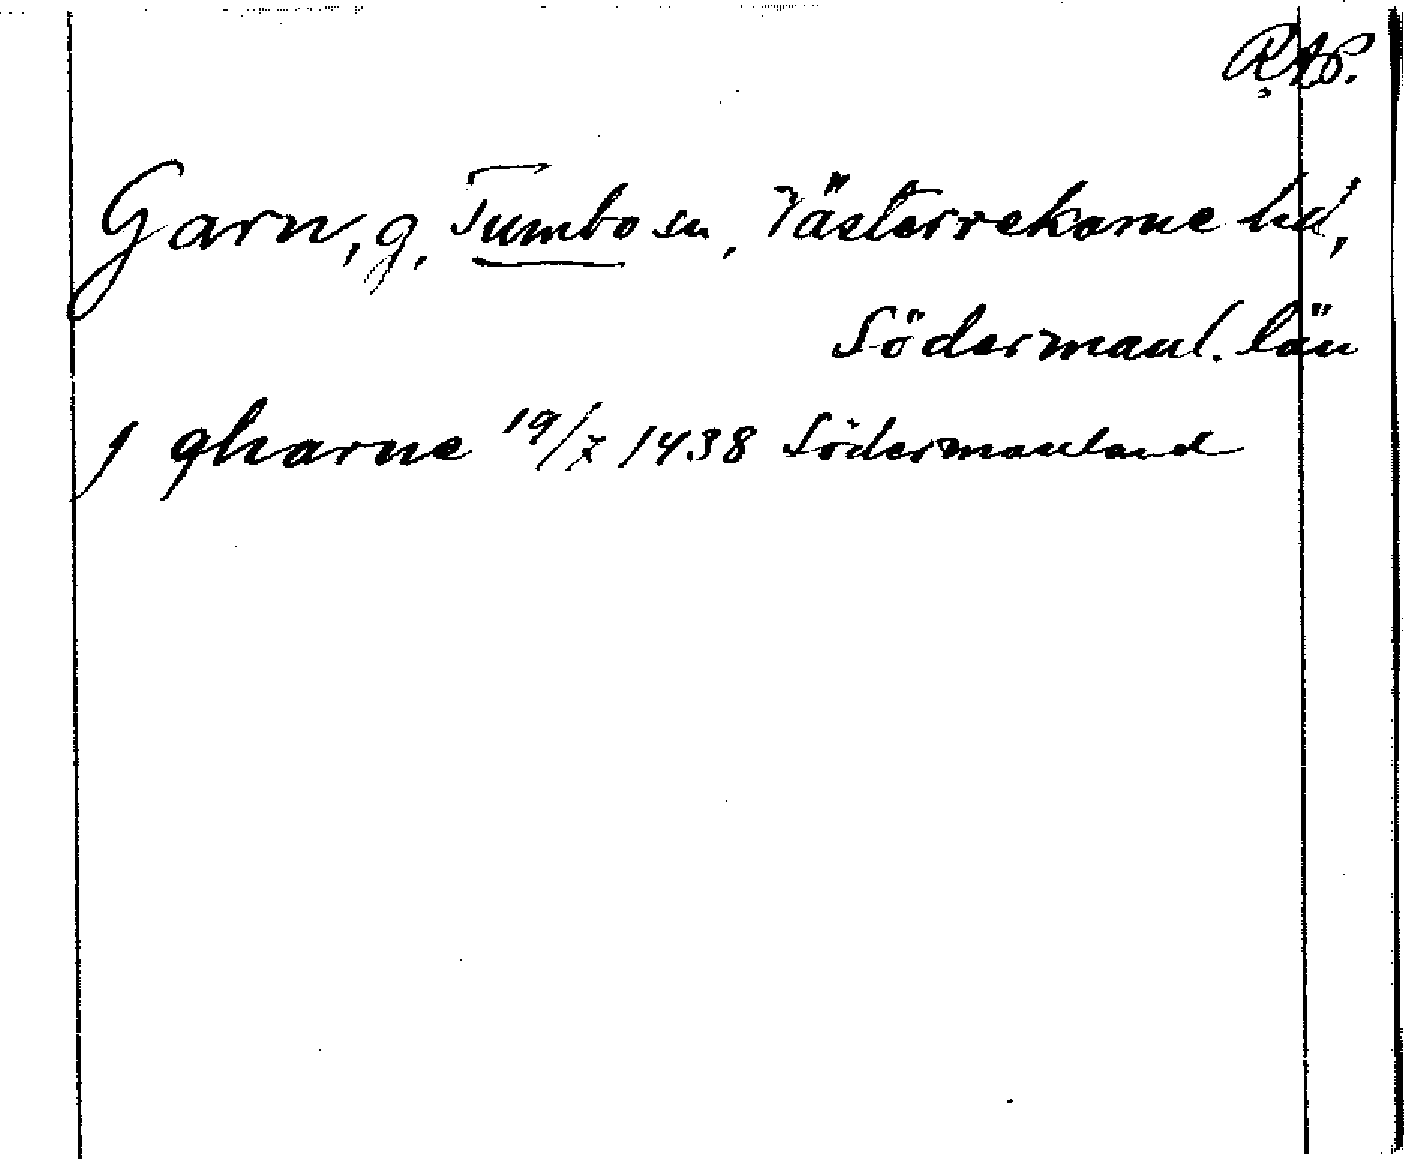 RAP.
Garn, g. Tumbo sn, Västerrekarne hd,
Södermanl. län
j gharne 19/7 1438 Södermanland